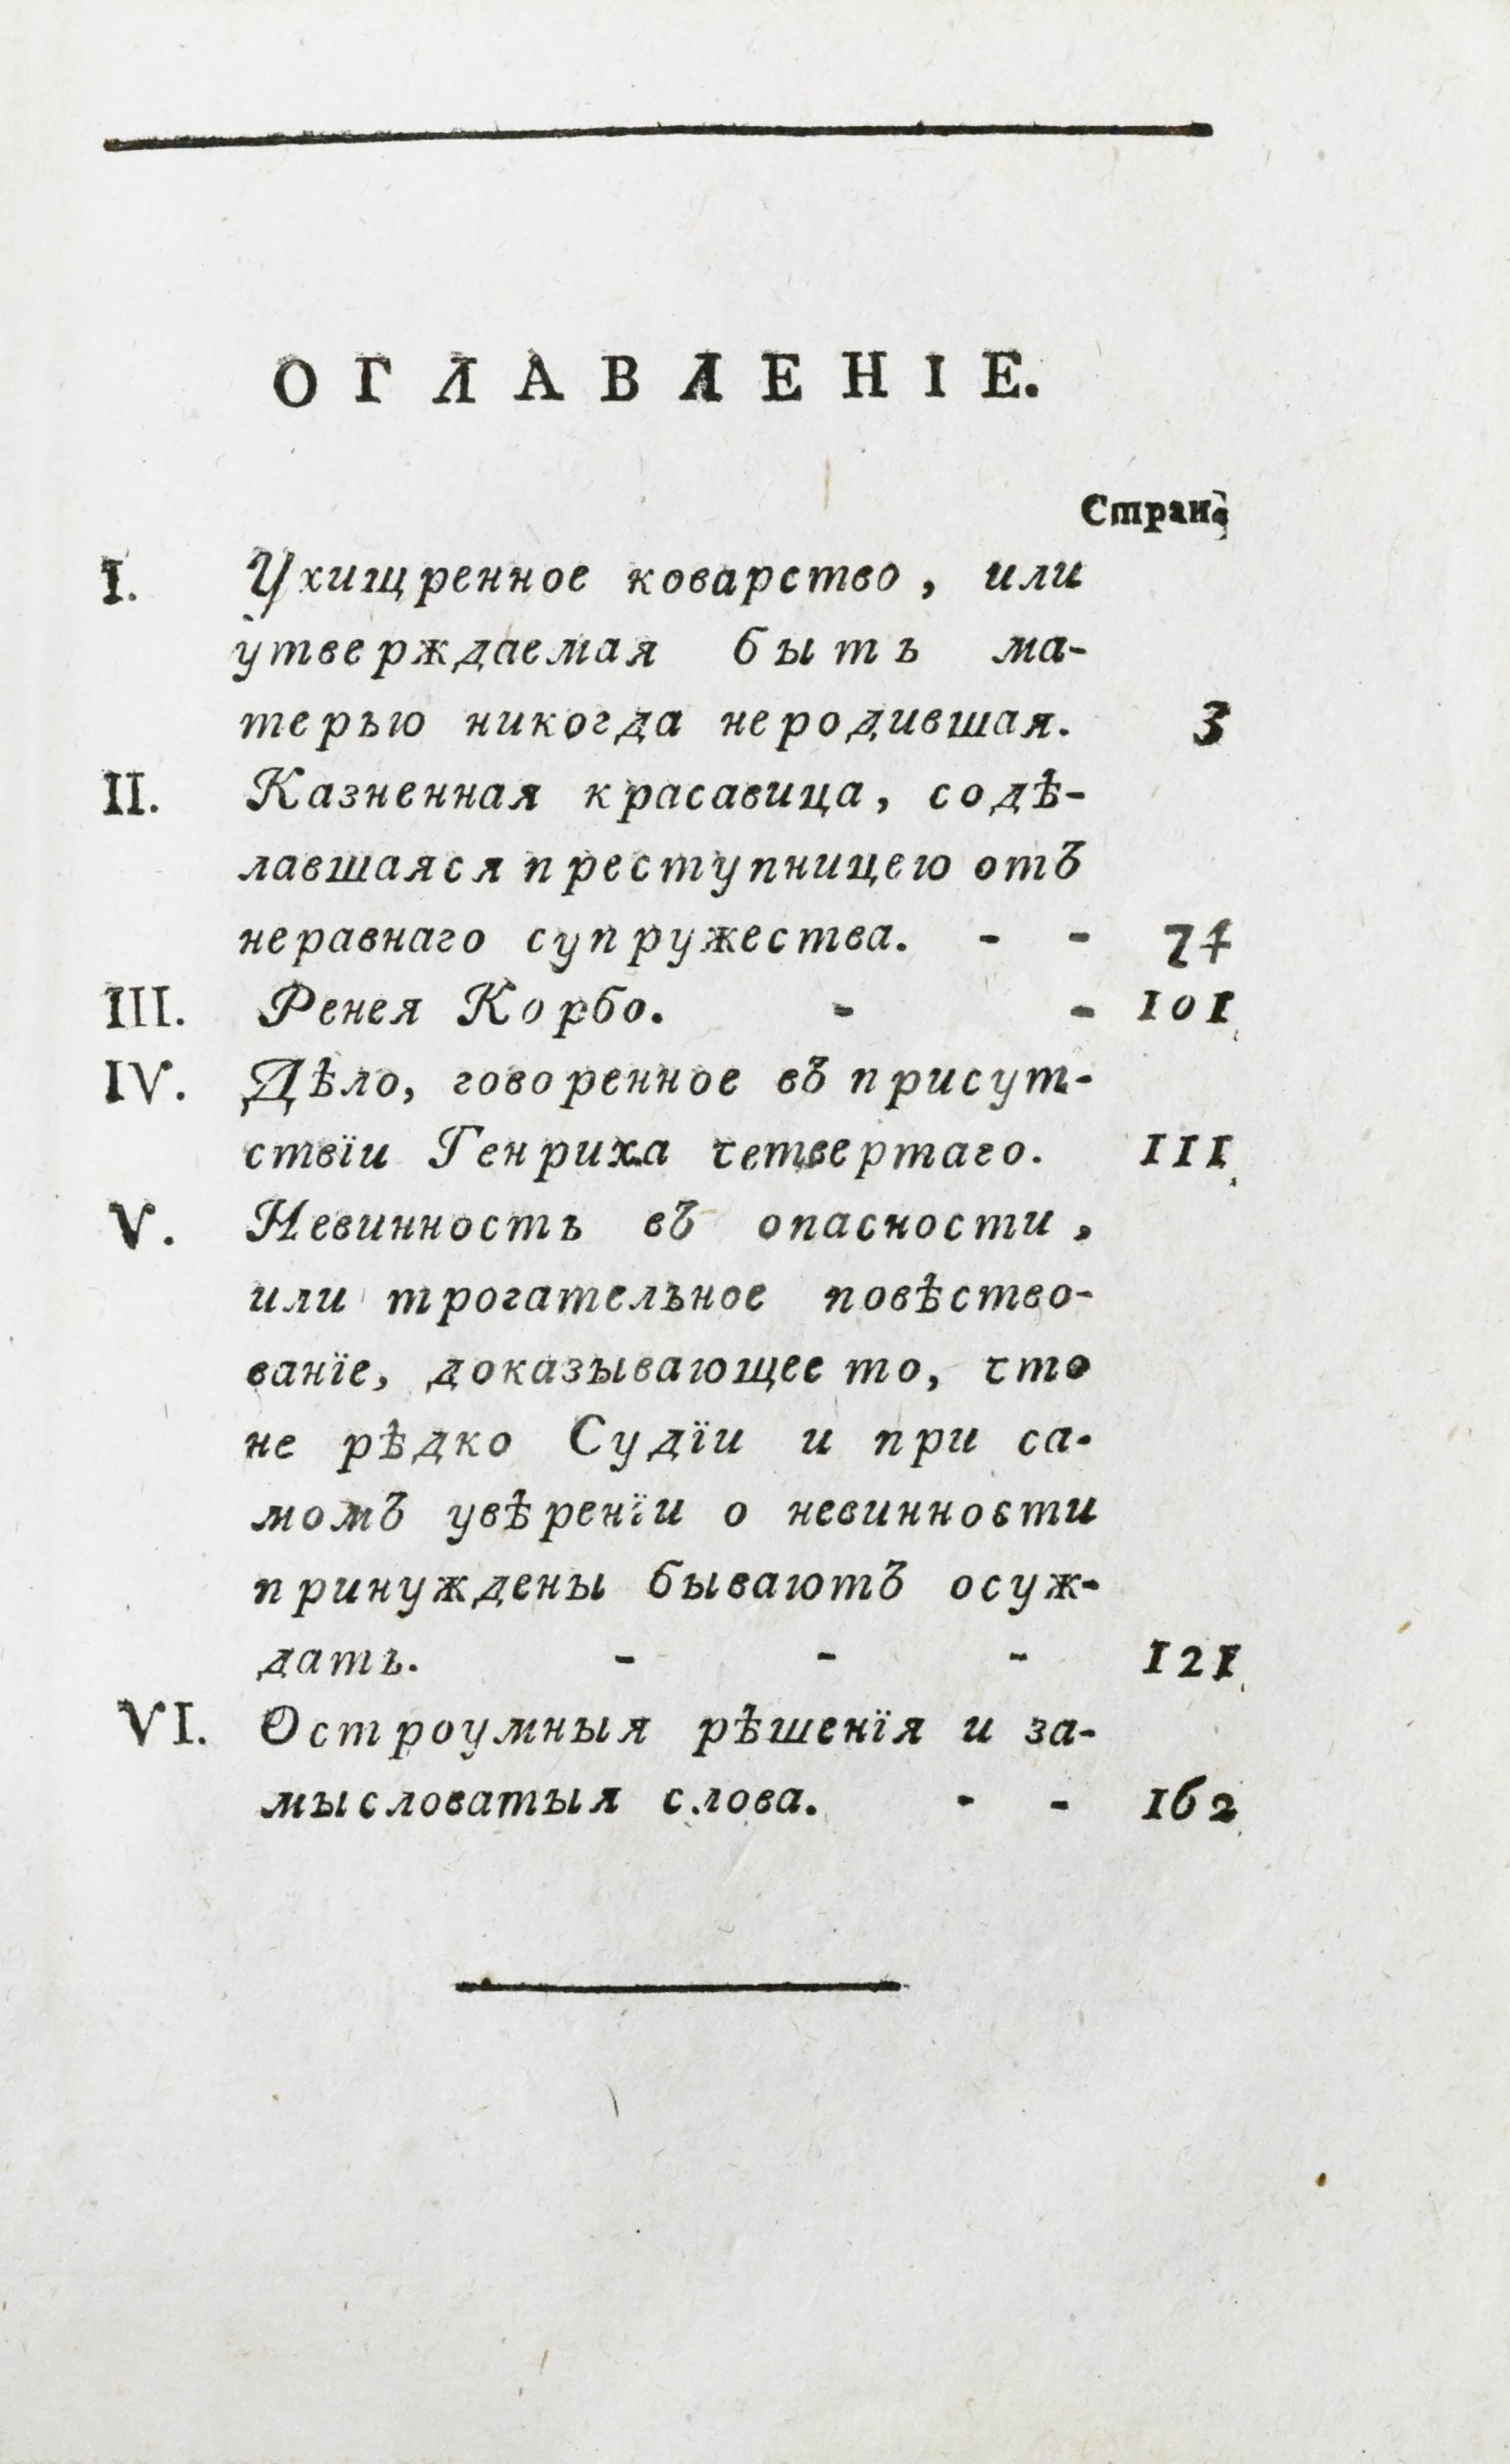 ОГЛАВЛЕНІЕ.
Стран.
I. Ухищренное коварство, или
утверждаемая быть ма-
терью никогда неродившая. 3
II. Казненная красавица, содѣ-
лавшаяся преступницею отъ
неравнаго супружества. - - 74
III. Ренея Корбо. - - 101
IV. Дѣло, говоренное въ присут-
ствїи Генриха четвертаго. 111
V. Невинность въ опасности,
или трогательное повѣство-
ванїе, доказывающее то, что
не рѣдко Судїи и при са-
момъ увѣренїи о невинности
принуждены бываютъ осуж-
дать. - - - 121
VI. Остроумныя рѣшенїя и за-
мысловатыя слова. - - 162